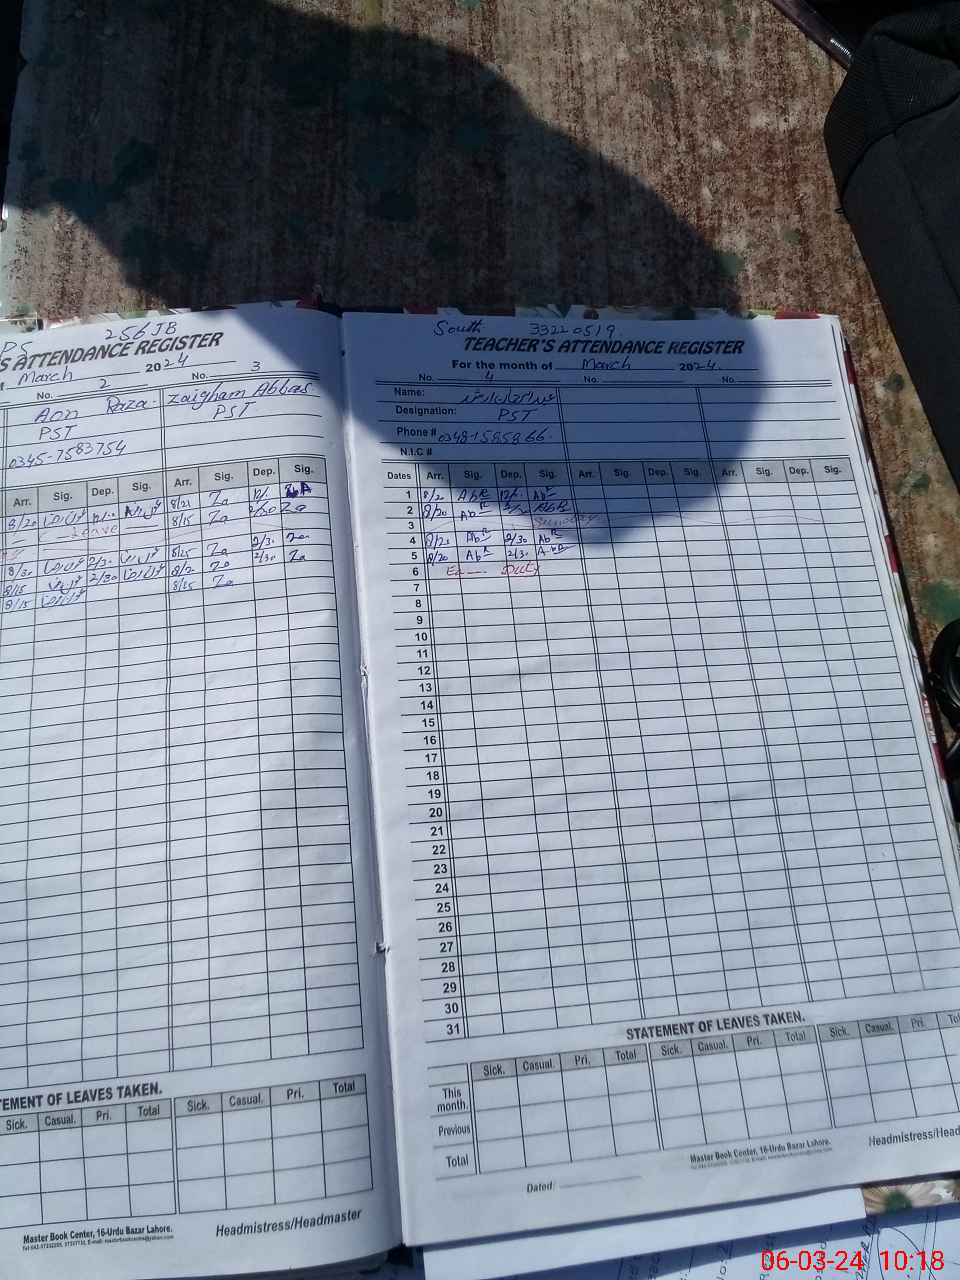 256JB
S ATTENDANCE REGISTER
March 2024
No. 2 No. 3
Aon Raza Zaigham Abbas
PST PST
0345-7583754
Arr. Sig. Dep. Sig. Arr. Sig. Dep. Sig.
8/20 8/21 Za
Leave 8/15 Za Za
8/30 2/30 8/25 Za 2/30 Za
8/15 2/30 Za 2/30 Za
8/15 Za
TEMENT OF LEAVES TAKEN.
Sick. Casual. Pri. Total Sick. Casual. Pri. Total
Master Book Center, 16-Urdu Bazar Lahore.
Headmistress/Headmaster
South 33220519
TEACHER'S ATTENDANCE REGISTER
For the month of March 2024.
No. 4 No. No.
Name:
Designation: PST
Phone # 0348-1595866.
N.I.C #
Dates Arr. Sig. Dep. Sig. Arr. Sig. Dep. Sig. Arr. Sig. Dep. Sig.
1 8/20 AbR AbR
2 8/20 AbR AbR
3 Sunday
4 8/20 AbR 2/30 AbR
5 8/20 AbR 2/30 AbR
6 Duty
7
8
9
10
11
12
13
14
15
16
17
18
19
20
21
22
23
24
25
26
27
28
29
30
31
STATEMENT OF LEAVES TAKEN.
Sick. Casual. Pri. Total Sick. Casual. Pri. Total Sick. Casual. Pri.
This month.
Previous
Total
Master Book Center, 16-Urdu Bazar Lahore.
Headmistress/Head
Dated:
06-03-24 10:18